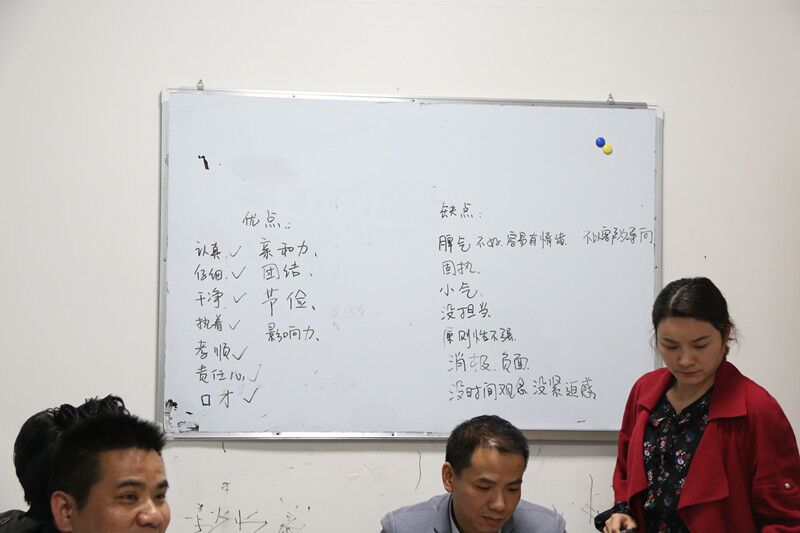 优点：
认真、✓ 亲和力、
仔细、✓ 团结、
干净、✓ 节俭、
执着 ✓ 影响力、
孝顺 ✓
责任心 ✓
口才 ✓
缺点：
脾气不好 容易有情绪 不以客户为导向
固执、
小气、
没担当
原则性不强
消极、负面
没时间观念 没紧迫感